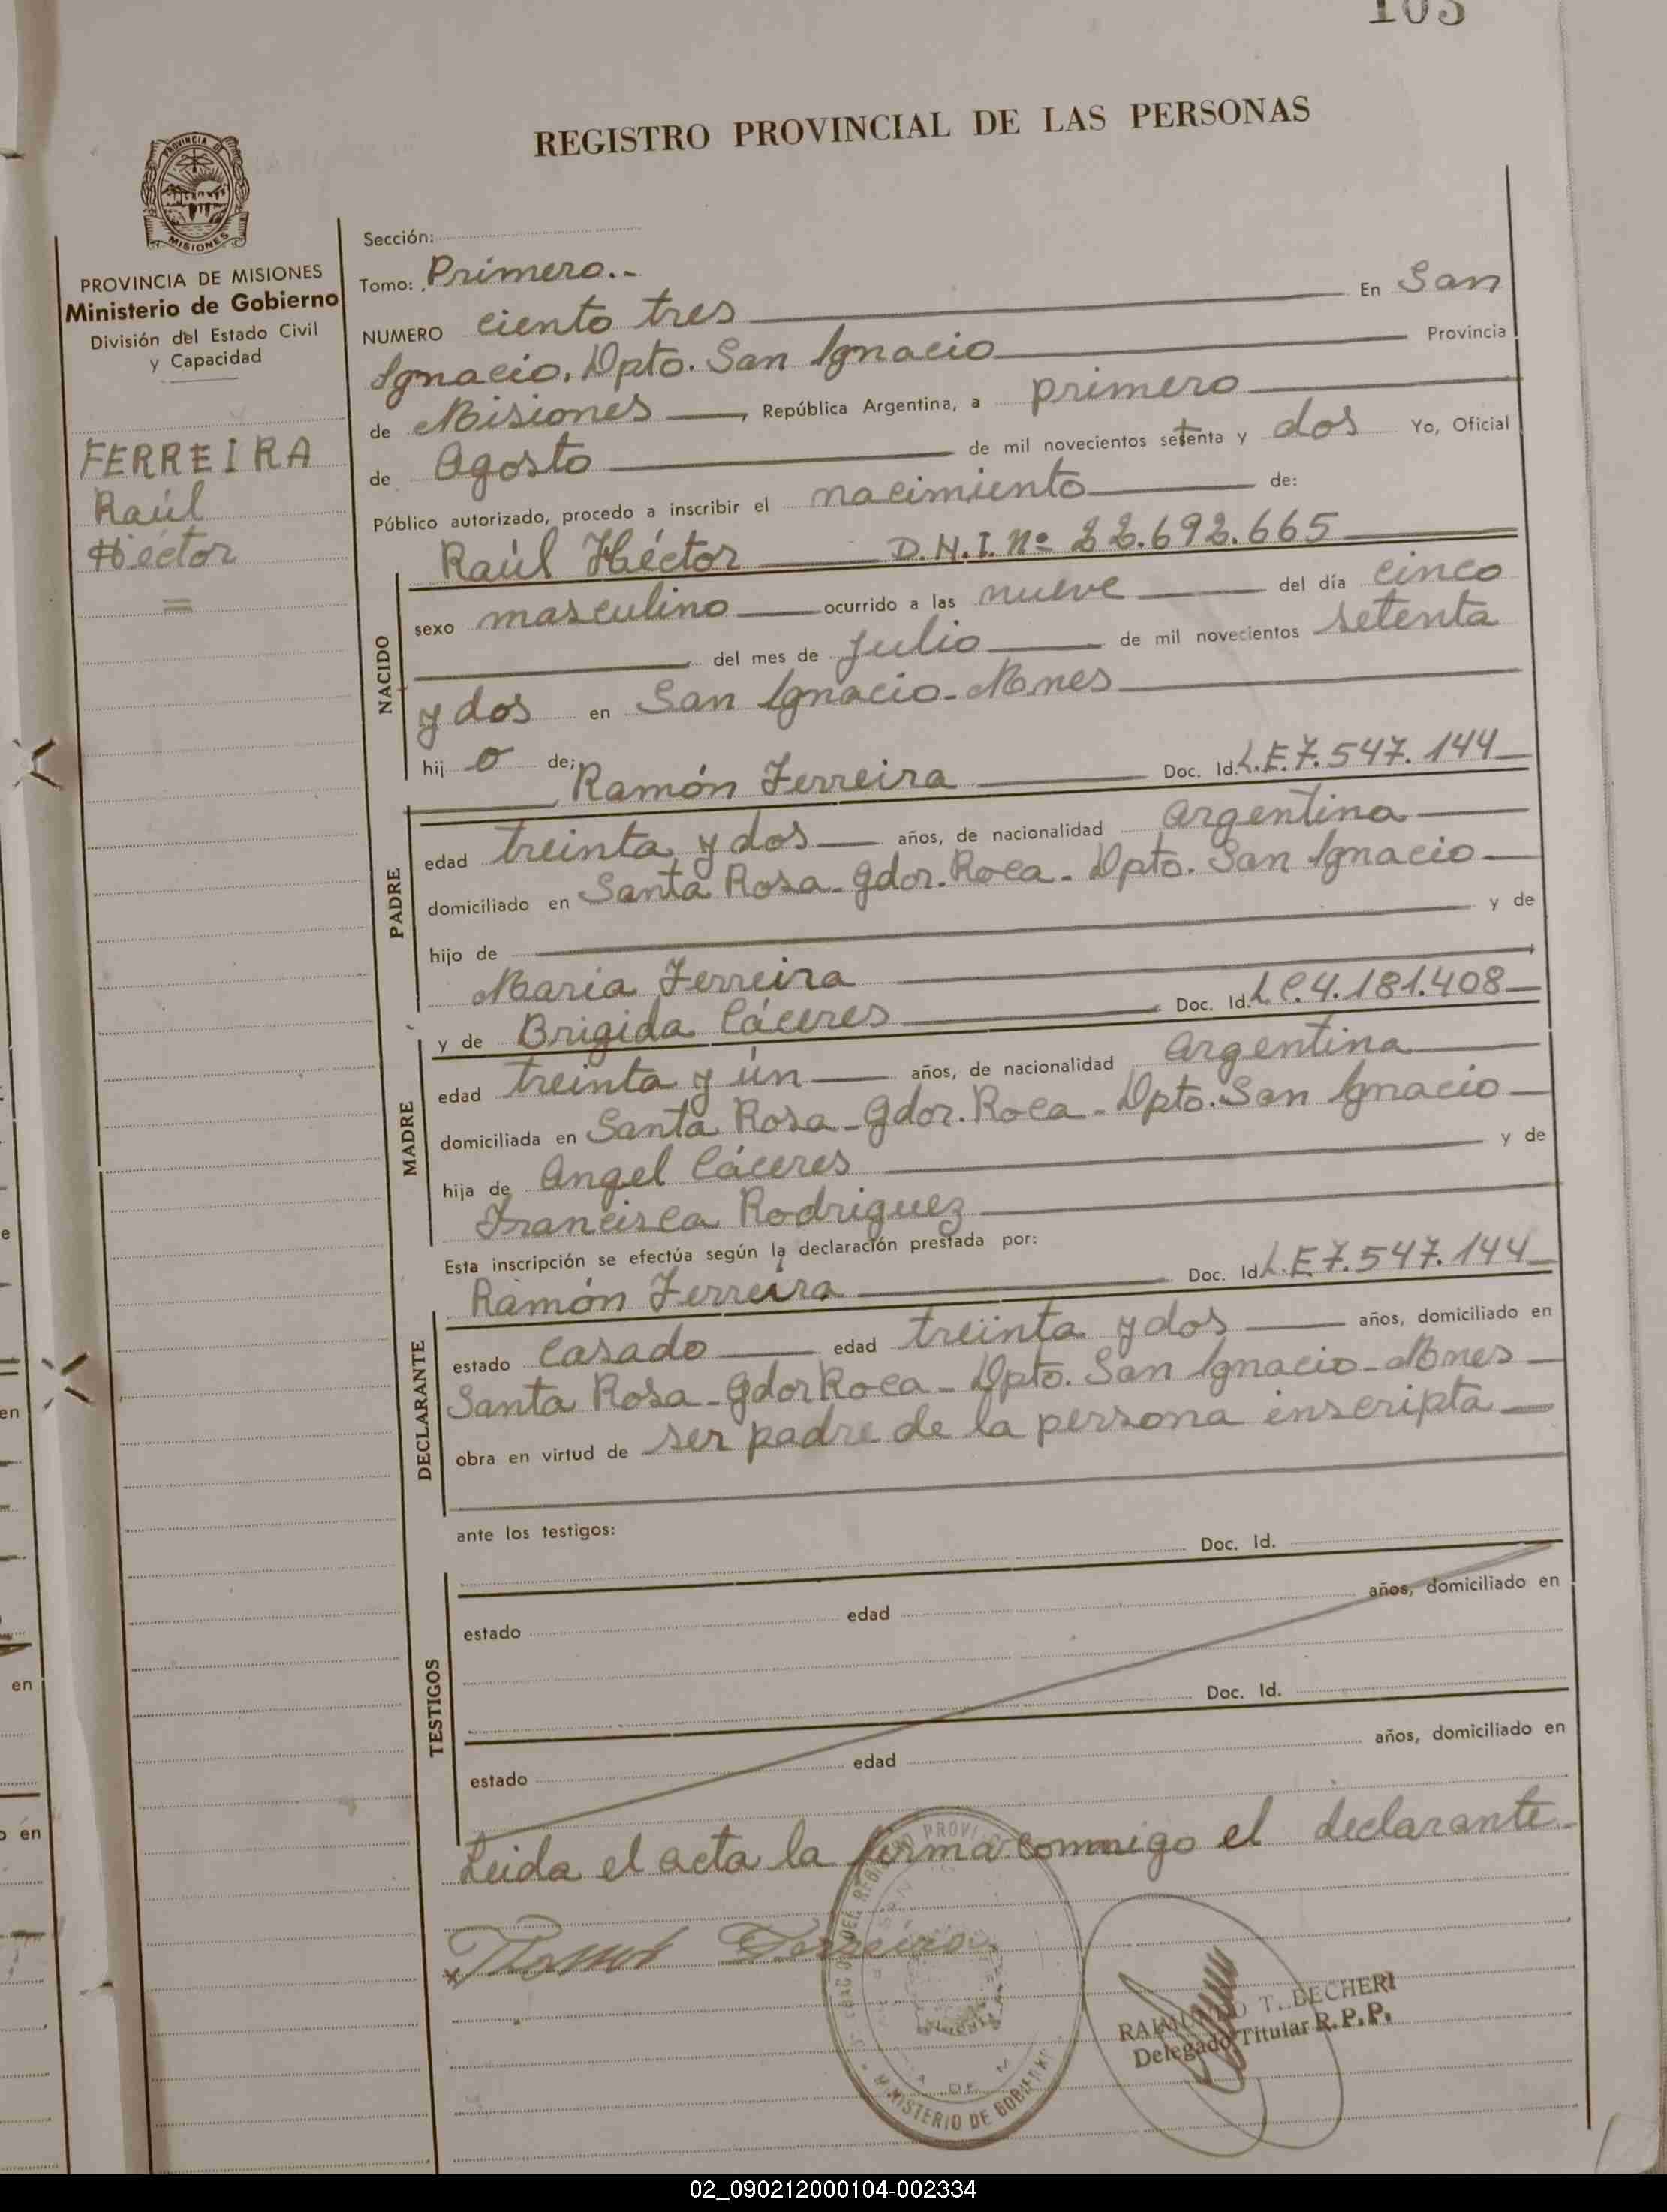 103
REGISTRO PROVINCIAL DE LAS PERSONAS
PROVINCIA DE
MISIONES
PROVINCIA DE MISIONES
Ministerio de Gobierno
División del Estado Civil
y Capacidad
FERREIRA
Raúl
Héctor
=
Sección:
Tomo: Primero.-
NUMERO ciento tres En San
Ignacio, Dpto. San Ignacio Provincia
de Misiones, República Argentina, a primero
de Agosto de mil novecientos setenta y dos Yo, Oficial
Público autorizado, procedo a inscribir el nacimiento de:
NACIDO
Raúl Héctor D.N.I. Nº 22.692.665
sexo masculino ocurrido a las nueve del día cinco
del mes de Julio de mil novecientos setenta
y dos en San Ignacio - Mnes
hij o de;
PADRE
Ramón Ferreira Doc. Id. L.E. 7.547.144
edad treinta y dos años, de nacionalidad Argentina
domiciliado en Santa Rosa - Gdor. Roca - Dpto. San Ignacio
hijo de y de
María Ferreira
MADRE
y de Brigida Cáceres Doc. Id. L.C. 4.181.408
edad treinta y ún años, de nacionalidad Argentina
domiciliada en Santa Rosa - Gdor. Roca - Dpto. San Ignacio
hija de Angel Cáceres y de
Francisca Rodriguez
Esta inscripción se efectúa según la declaración prestada por:
DECLARANTE
Ramón Ferreira Doc. Id. L.E 7.547.144
estado casado edad treinta y dos años, domiciliado en
Santa Rosa - Gdor Roca - Dpto. San Ignacio - Mnes
obra en virtud de ser padre de la persona inscripta
ante los testigos:
TESTIGOS
Doc. Id.
estado edad años, domiciliado en
Doc. Id.
estado edad años, domiciliado en
Leida el acta la firma conmigo el declarante
Ferreira
MINISTERIO DE GOBIERNO
RAIMUNDO T. BECHERI
Delegado Titular R. P. P.
e
en
en
o en
02_090212000104-002334